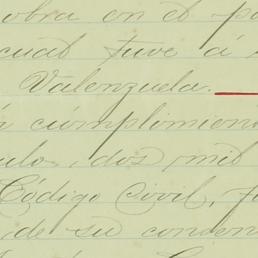 obra en el
cual tuve á
Valenzuela.
cumplimien
dos mil
Código Civil,
de su consen